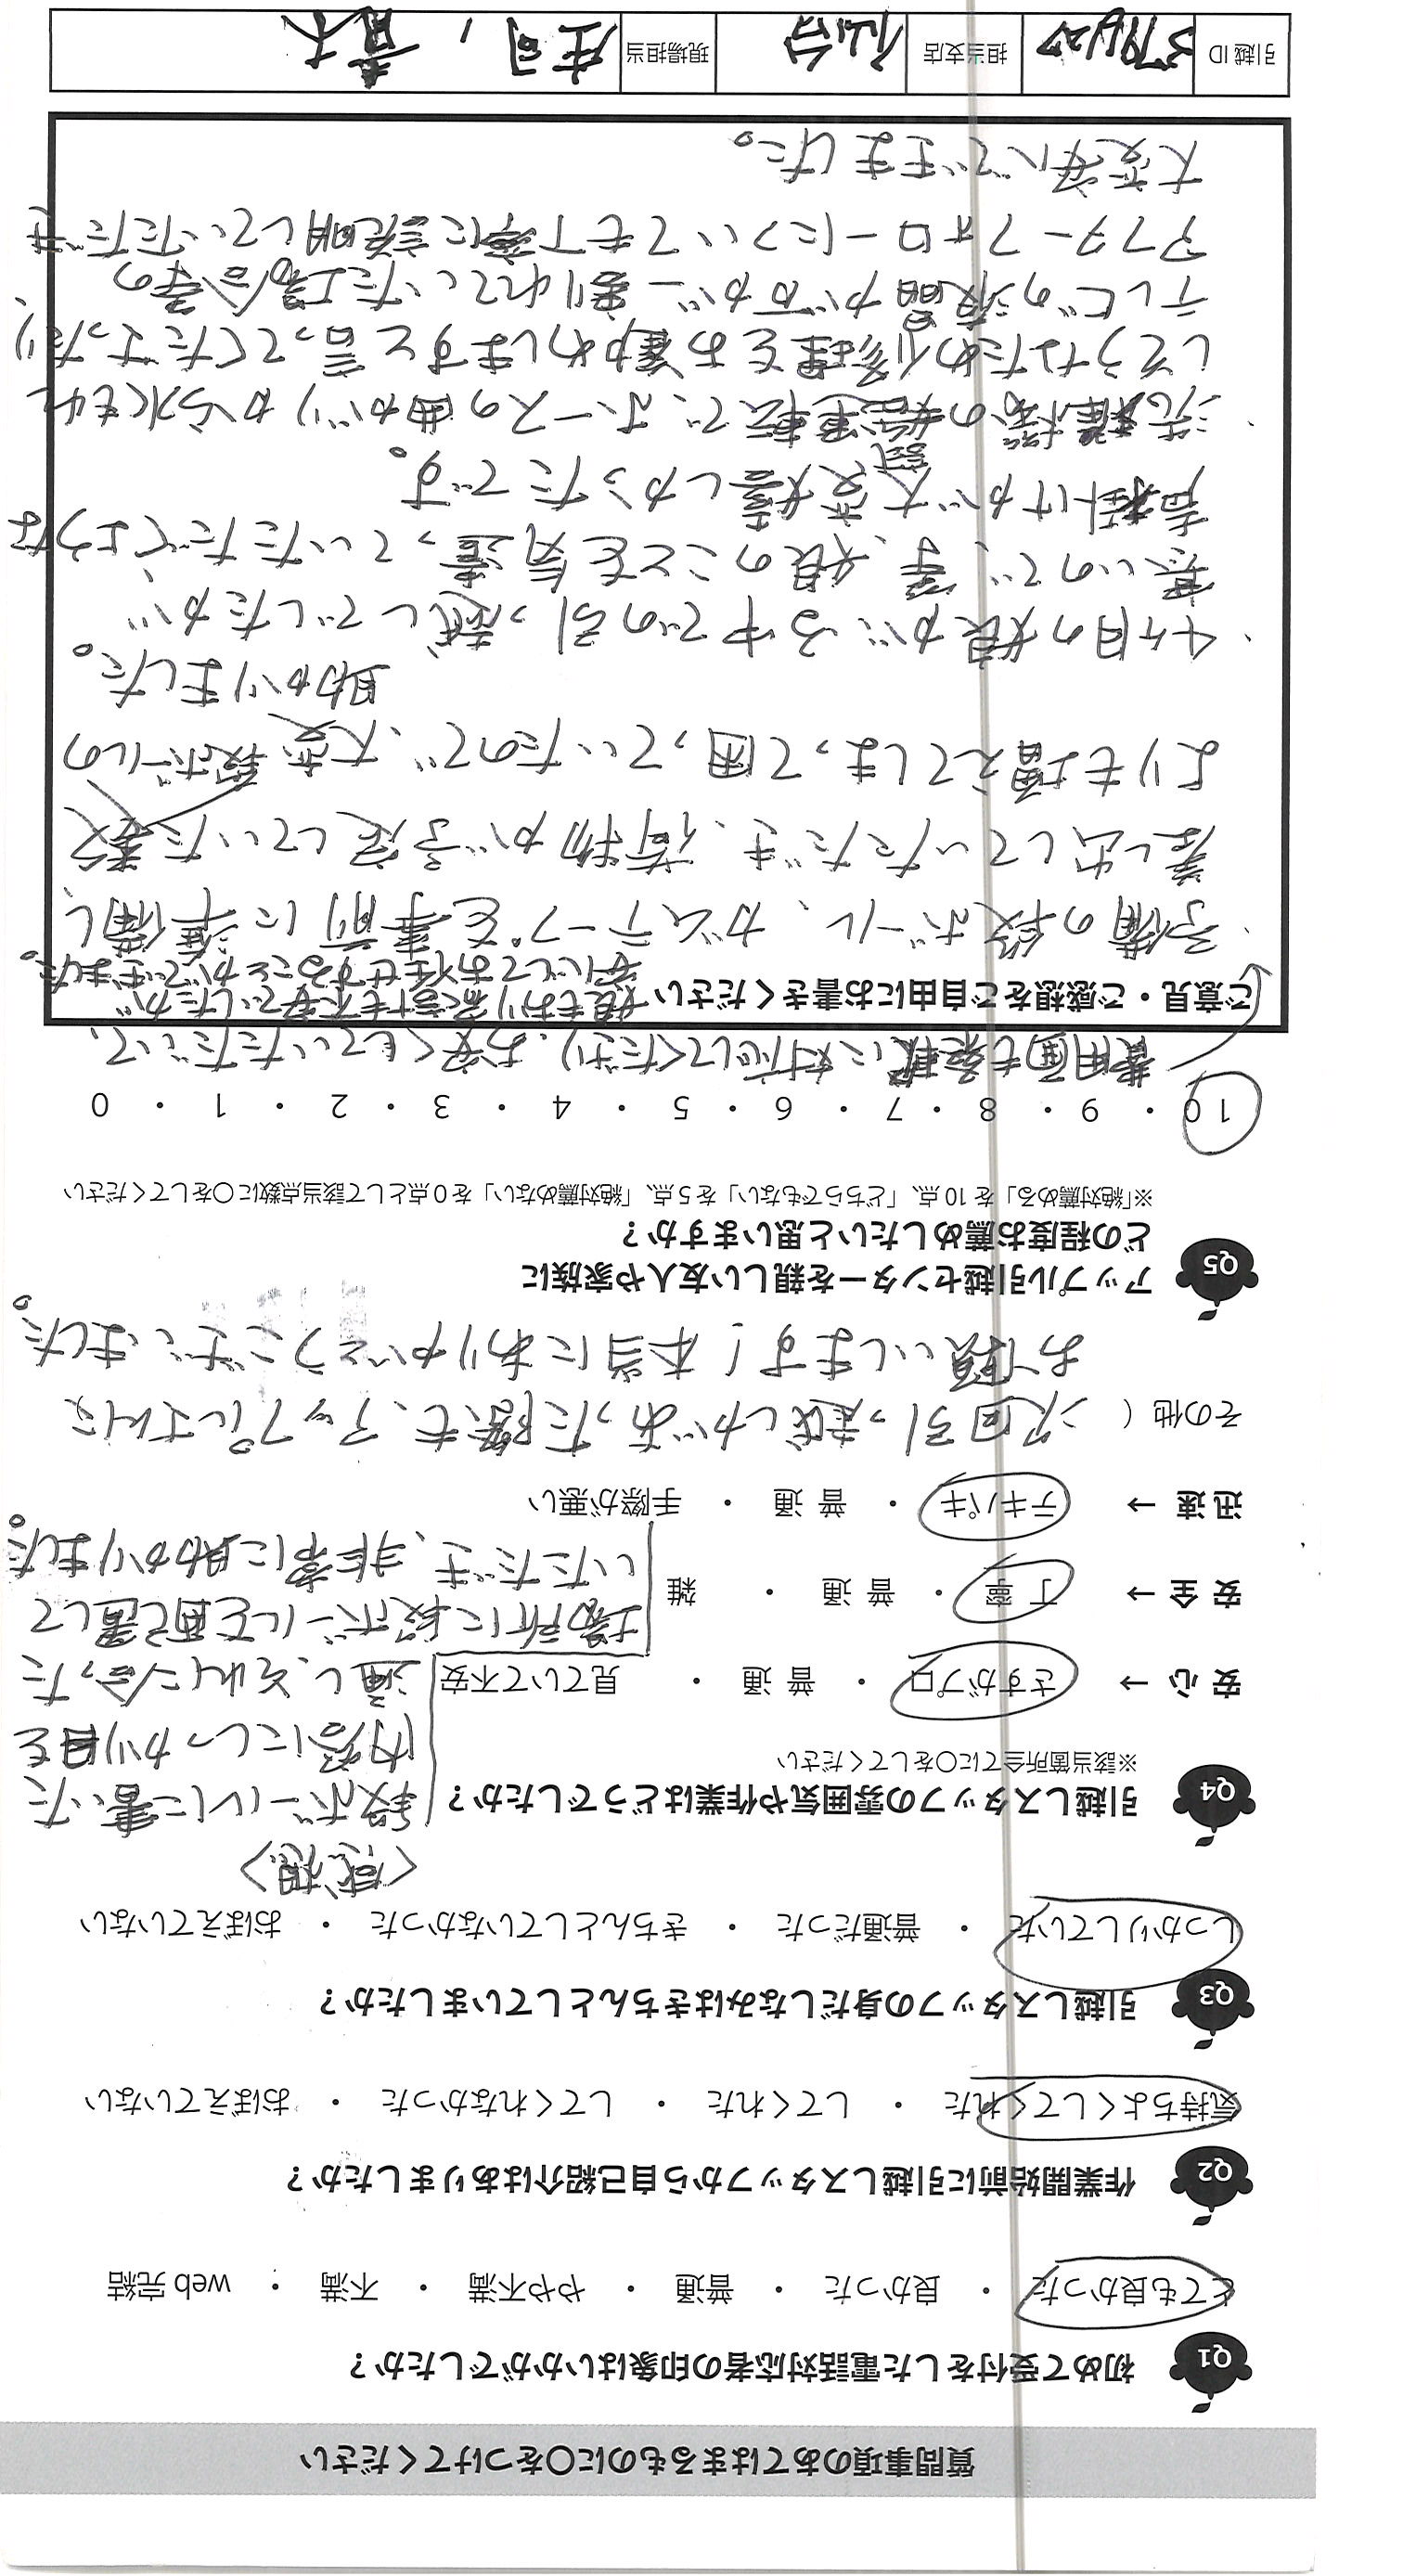 質問事項のあてはまるものに〇をつけてください
Q1 初めて受付をした電話対応者の印象はいかがでしたか？
とても良かった ・ 良かった ・ 普通 ・ やや不満 ・ 不満 ・ web 完結
Q2 作業開始前に引越しスタッフから自己紹介はありましたか？
気持ちよくしてくれた ・ してくれた ・ してくれなかった ・ おぼえていない
Q3 引越しスタッフの身だしなみはきちんとしていましたか？
しっかりしていた ・ 普通だった ・ きちんとしていなかった ・ おぼえていない
Q4 引越しスタッフの雰囲気や作業はどうでしたか？
※該当箇所全てに〇をしてください
安心 → さすがプロ ・ 普通 ・ 見ていて不安
安全 → 丁寧 ・ 普通 ・ 雑
迅速 → テキパキ ・ 普通 ・ 手際が悪い
〈感想〉
段ボールに書いた
内容にしっかり目を
通し、それに合った
場所に段ボールを配置して
いただき、非常に助かりました。
その他（ 次回引っ越しがあった際も、アップルさんに
お願いします！本当にありがとうございました。
Q5 アップル引越センターを親しい友人や家族に
どの程度お薦めしたいと思いますか？
※「絶対薦める」を 10 点、「どちらでもない」を 5 点、「絶対薦めない」を 0 点として該当点数に〇をしてください
10 ・ 9 ・ 8 ・ 7 ・ 6 ・ 5 ・ 4 ・ 3 ・ 2 ・ 1 ・ 0
費用面も柔軟に対応してくださり、お安くしていただいて、
ご意見・ご感想をご自由にお書きください
娘もおり家計も不安でしたが
安心してお任せすることができました。
・予備の段ボール、ガムテープを事前に準備し、
差し出していただき、荷物が予定していた数
よりも増えてしまって困っていたので、大変
段ボールの
助かりました。
・4ヶ月の娘がいる中での引っ越しでしたが、
寒いので、等、娘のことを気遣っていただくような
声掛けが大変嬉しかったです。
・洗濯機の試運転で、ホースの曲がりから水もれ
しそうなため修理をお薦めしますと言ってくださったり、
テレビの液晶が万が一割れていた場合等の
アフターフォローについても丁寧に説明していただき
大変安心できました。
引越 ID
担当支店 仙台
現場担当 庄司、青木